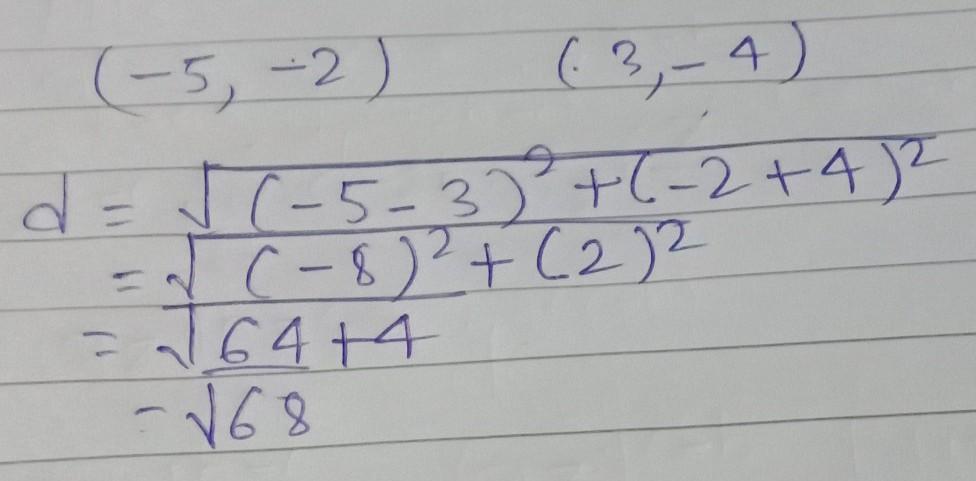 (-5, -2) (3, -4)
d = √(-5-3)² + (-2+4)²
= √(-8)² + (2)²
= √64+4
- √68